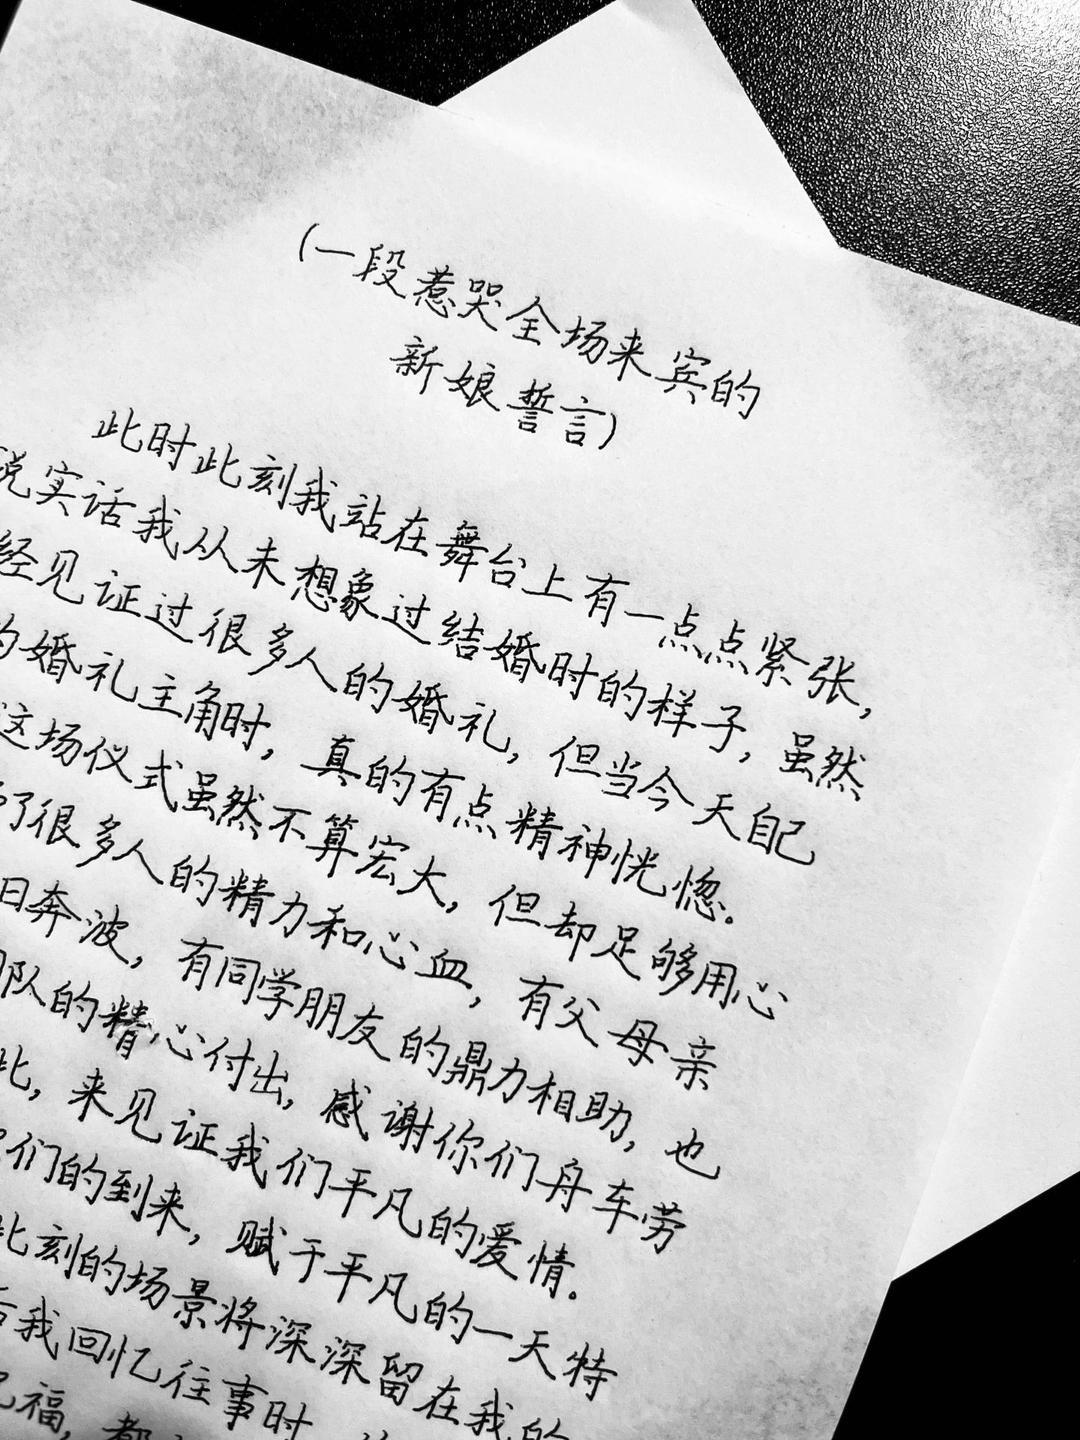 (一段惹哭全场来宾的
新娘誓言)
此时此刻我站在舞台上有一点点紧张,
说实话我从未想象过结婚时的样子,虽然
经见证过很多人的婚礼,但当今天自己
的婚礼主角时,真的有点精神恍惚。
这场仪式虽然不算宏大,但却足够用心
了很多人的精力和心血,有父母亲
日奔波,有同学朋友的鼎力相助,也
团队的精心付出,感谢你们舟车劳
此,来见证我们平凡的爱情。
们的到来,赋于平凡的一天特
此刻的场景将深深留在我的
后我回忆往事时
祝福,都